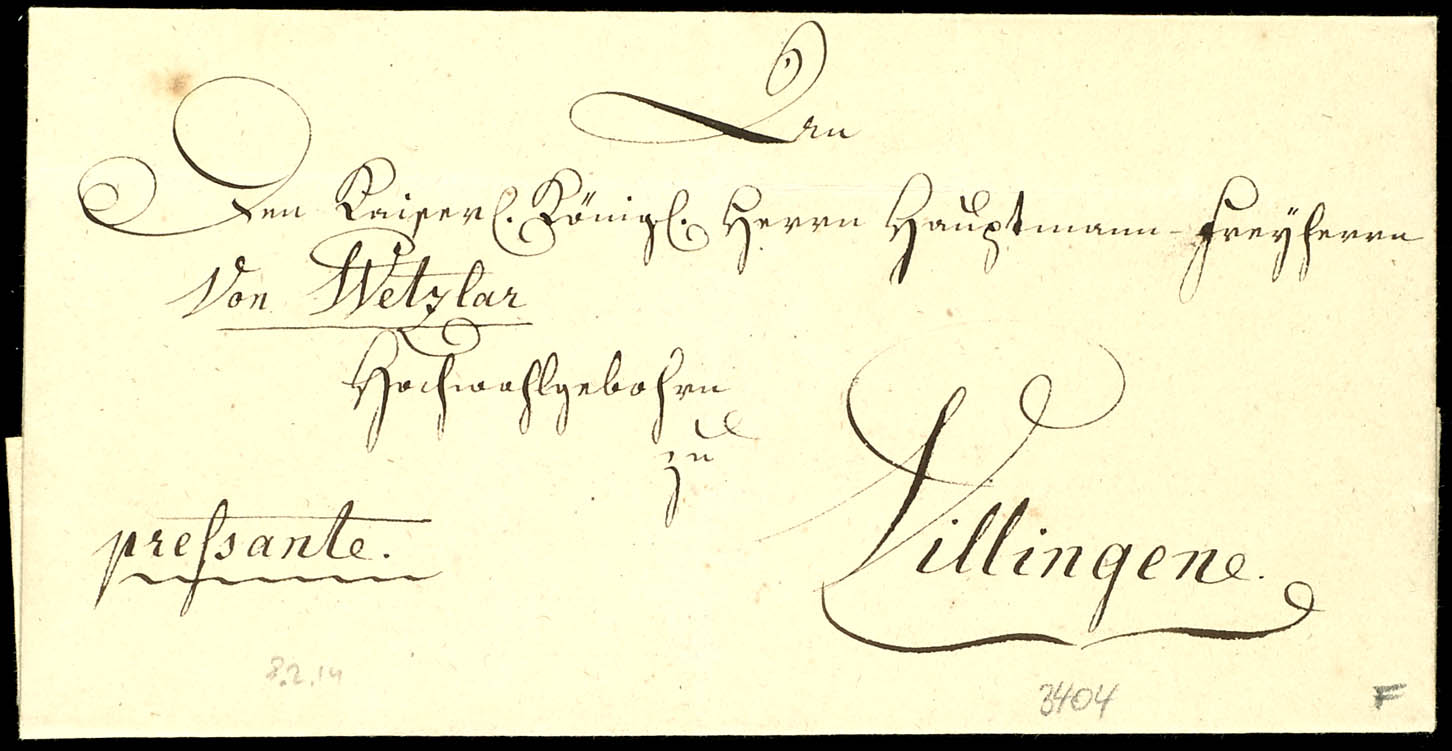 An
Den Kaiserl. Königl. Herrn Hauptmann Freyherrn
Von Wetzlar
Hochwohlgebohrn
zu
Villingen.
preſsante.
8.2.14
3404
F